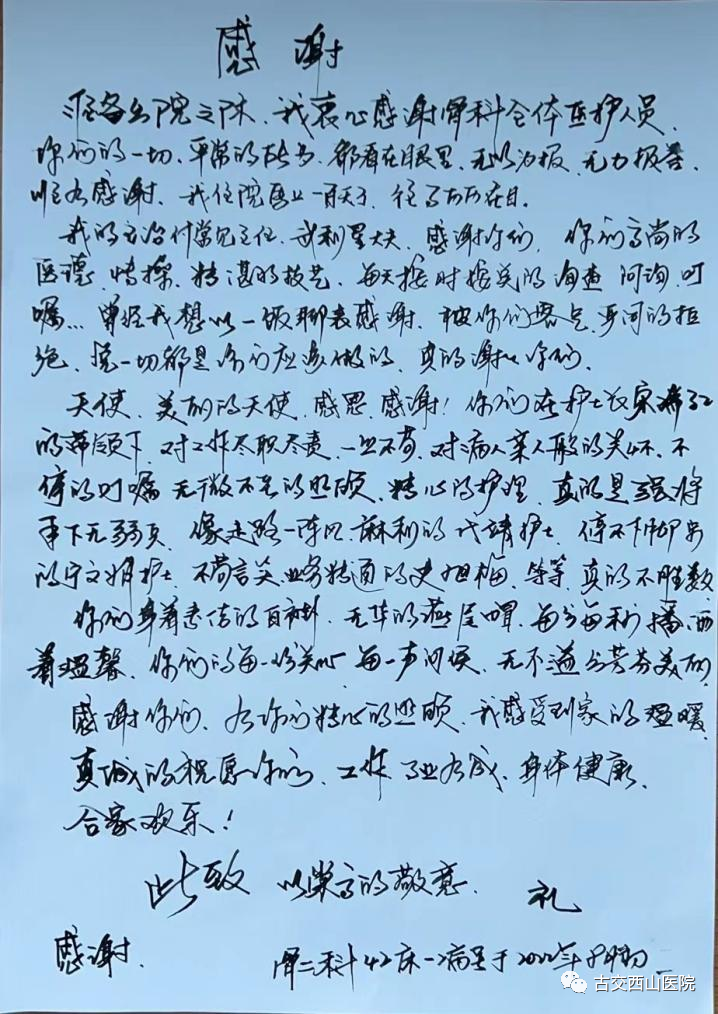 感谢
准备出院之际、我衷心感谢骨科全体医护人员、
你们的一切、平常的、都看在眼里、无以为报、无力报答
唯有感谢、我住院一百天、往事历历在目。
我的主治主任、大夫、感谢你们、你们高尚的
医德、情操、精湛的技艺、每天按时按点的询查、问询、叮
嘱…曾经我想以一饭聊表感谢、被你们的拒
绝、说一切都是你们应该做的、真的谢谢你们、
天使、美丽的天使、感恩、感谢！你们在护士长
的带领下、对工作尽职尽责、一丝不苟、对病人亲人般的关怀、不
停的叮嘱、无微不至的照顾、精心的护理、真的是强将
手下无弱兵、像走路一阵风、麻利的代靖护士、停不下脚步
的宁文娟护士、不苟言笑、业务精通的史旭梅、等等、真的不胜数
你们身着素洁的白衫、无华的燕尾帽、每分每秒播洒
着温馨、你们的每一份关心、每一声问候、无不溢出芳芬美丽
感谢你们、有你们精心的照顾、我感受到家的温暖、
真诚的祝愿你们、工作事业有成、身体健康、
合家欢乐！
此致 以崇高的敬意、 礼
感谢、 骨二科42床一病号于2022年
古交西山医院